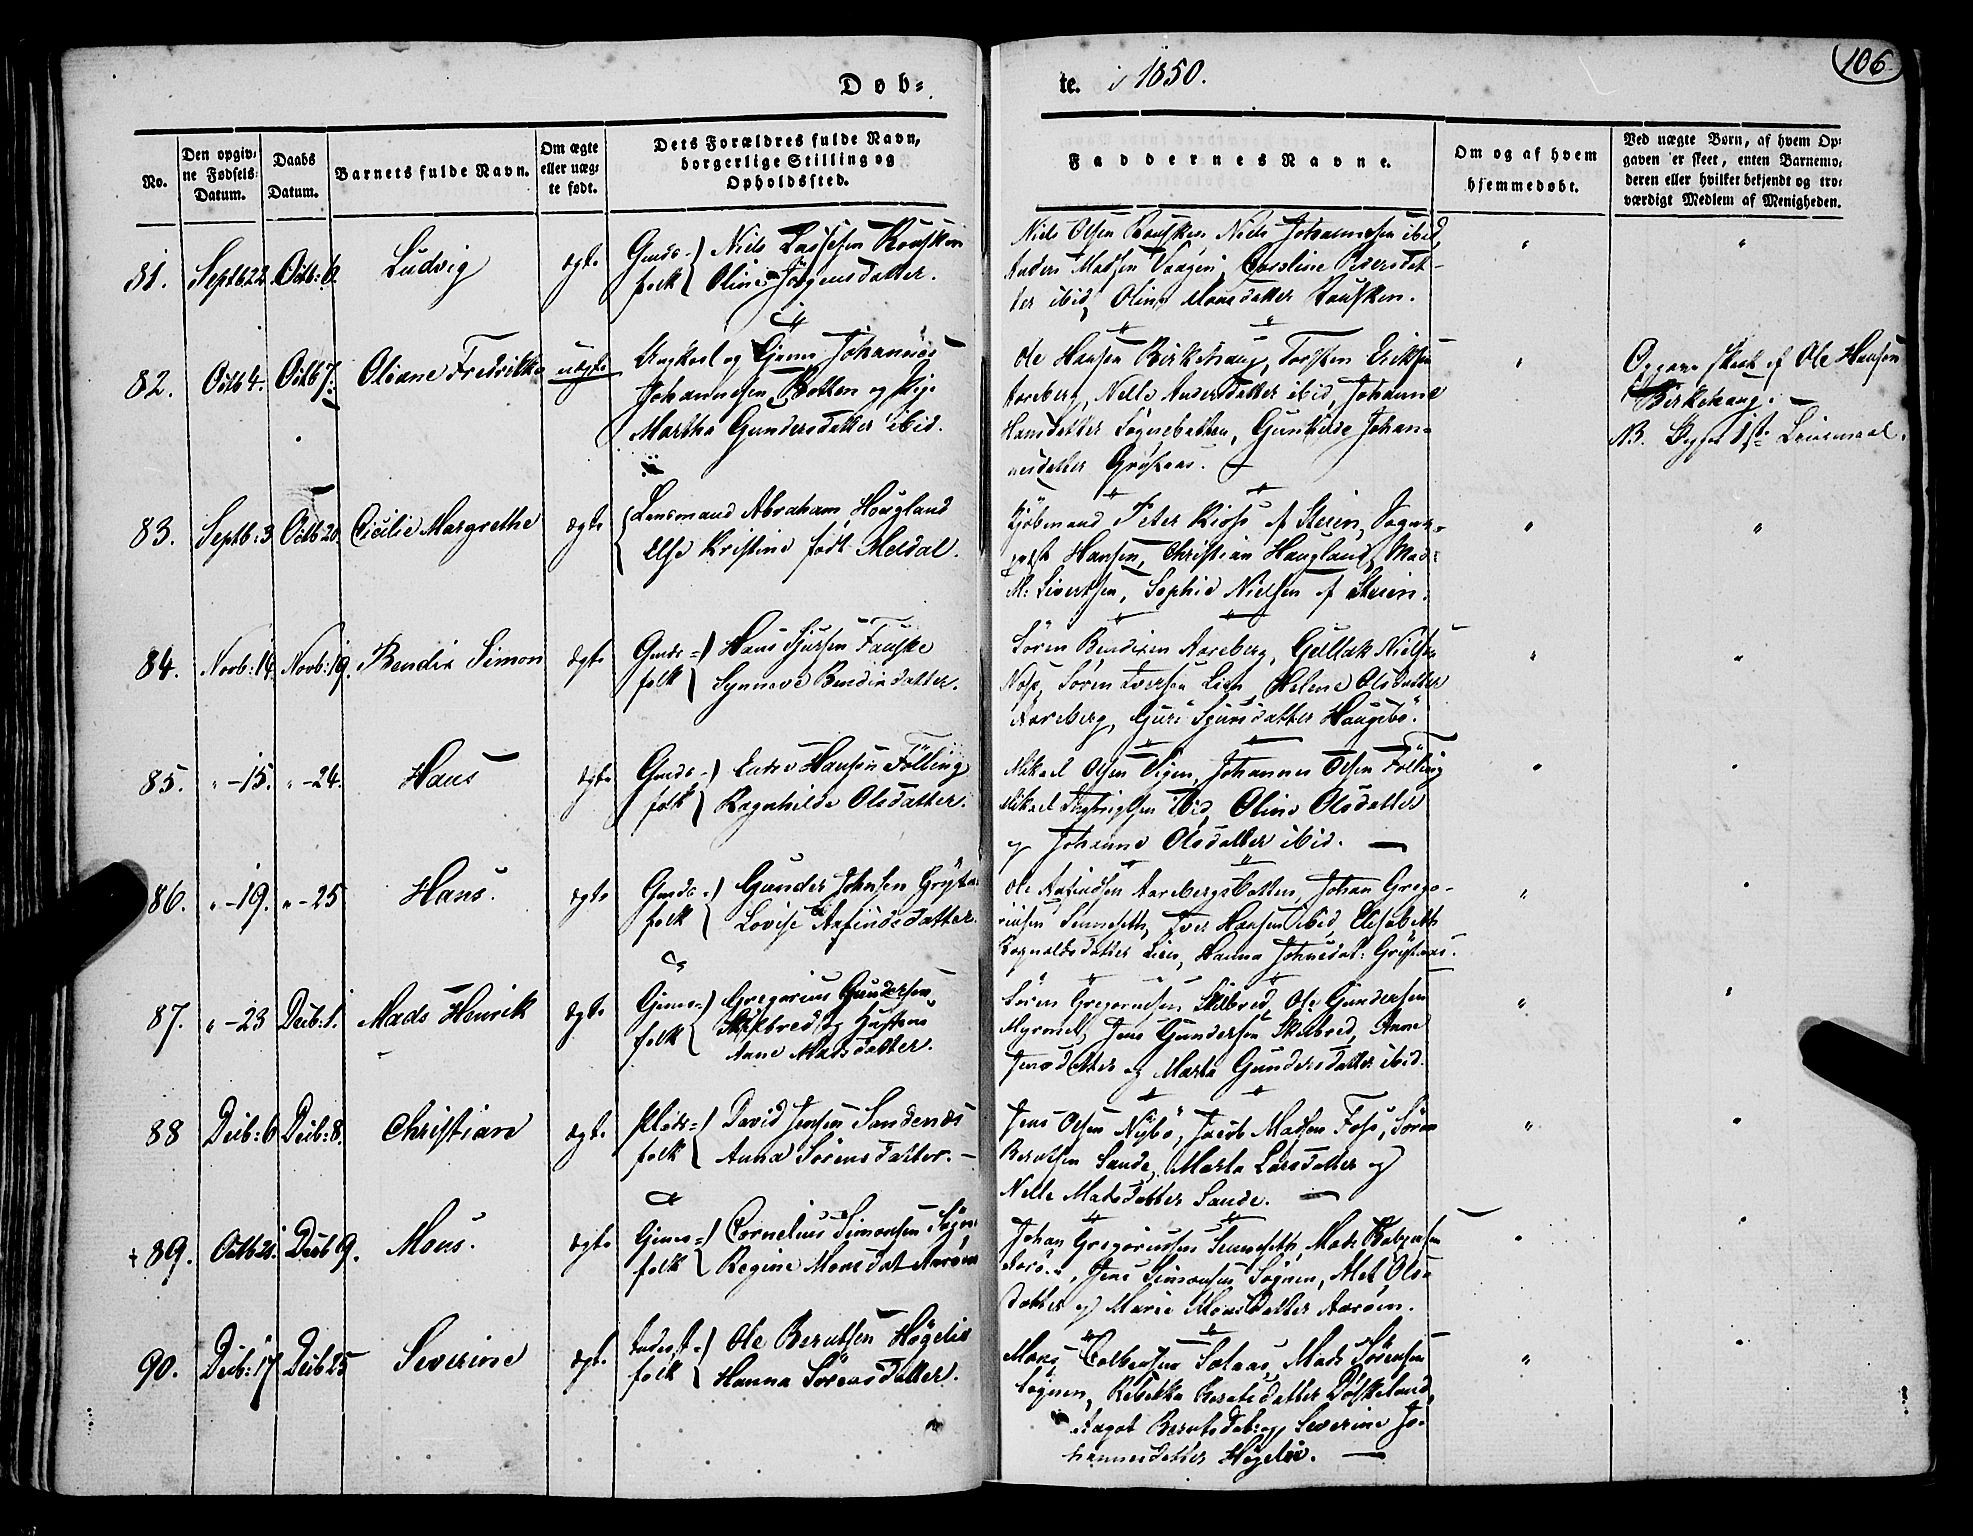 106
Døb=
te. i 1850.
No.
Den opgiv=
ne Fødsels
Datum.
Daabs
Datum.
Barnets fulde Navn.
Om ægte
eller uæg=
te født.
Dets Forældres fulde Navn,
borgerlige Stilling og
Opholdssted.
Faddernes Navne.
Om og af hvem
hjemmedøbt.
Ved uægte Børn, af hvem Op=
gaven er skeet, enten Barnemo=
deren eller hvilket bekjendt og tro=
værdigt Medlem af Menigheden.
81. Septb 22. Octb: 6. Ludvig ægte
Gmds=
folk
Niels Lassesen
Oline Jörgensdatter.
Niels Olsen Niels Johannesen ibid,
Anders Madsen Vaagen, Caroline Pedersdat=
ter ibid, Oline Monsdatter
82. Octb 4. Octb 7. Oliane Fredrikke uægte
Ungkarl og Johannes
Johannesen Botten og Pige
Martha Gundersdatter ibid.
Ole Hansen Birkehaug, Torsten Eriksen
Aareberg, Nille Andersdatter ibid, Johanne
Hansdatter Sögnebotten, Gunhilde Johan=
nesdatter
Opgave skeet af Ole Hansen
Birkehaug.
NB. 1ste Leiermaal.
83. Septb: 3 Octb 20. Cicilie Margrethe ægte
Lensmand Abraham Hougland
Else Kristine født Meldal.
Kjöbmand Peter af Steien, Sogne=
præst Hansen, Christian Haugland, Mad:
M: Sivertsen, Sophie Nielsen af Steien.
84. Novb: 14. Novb: 19. Bendix Simon ægte
Gmds=
folk
Hans Sjursen Fauske
Synneve Bendixdatter.
Sören Bendixen Aareberg, Gullak Nielsen
Sören Iversen Lien, Helene Olsdatter
Aareberg, Guri Sjursdatter Haugebö.
85. " - 15. " - 24. Hans ægte
Gmds=
folk
Hansen Fölling
Ragnhilde Olsdatter.
Mikael Olsen Johannes Olsen Fölling
Mikael ibid, Oline Olsdatter
og Johanne Olsdatter ibid.
86. " - 19. " - 25 Hans. ægte
Gmds=
folk
Gunder Johnsen
Lovise Arfindsdatter
Ole Arfindsen Aarebergsbotten, Johan Grego=
riusen Senneseth, Iver Hansen ibid, Elisabeth
Ragnaldsdatter Lien, Hanna Johnsdat:
87. " - 23 Decb: 1. Mads Henrik ægte
folk
Gregorius Gundersen
Skilbred og Hustru
Anne Madsdatter.
Sören Gregoriusen Skilbred, Ole Gundersen
Myrmel, Jens Gundersen Skilbred, Anne
Jensdatter og Marta Gundersdatter ibid.
88 Decb: 6 Decb: 8. Christian ægte
Plads=
folk
David Jensen Sandenæs
Anna Sörensdatter.
Jens Olsen Nybö, Jacob Madsen Foss, Sören
Berntsen Sande, Marta Larsdatter og
Nille Madsdatter Sande.
89. Octb 21. Decb 9. Mons. ægte
folk
Cornelius Simonsen
Regine Monsdat
Johan Gregoriusen Senneseth, Mads
Jens Simonsen Sögnen, Alet Ols=
datter og Marie Monsdatter Aaröen.
90. Decb: 17. Decb 25 Severine ægte
Inderst=
folk
Ole Berntsen Högelie
Hanna Sörensdatter.
Mons Colbensen Solaas, Mads Sörensen
Sögnen, Rebekka Berntsdatter Döskeland,
Aagot Berntsdat: og Severine Jo=
hannesdatter Högelie.